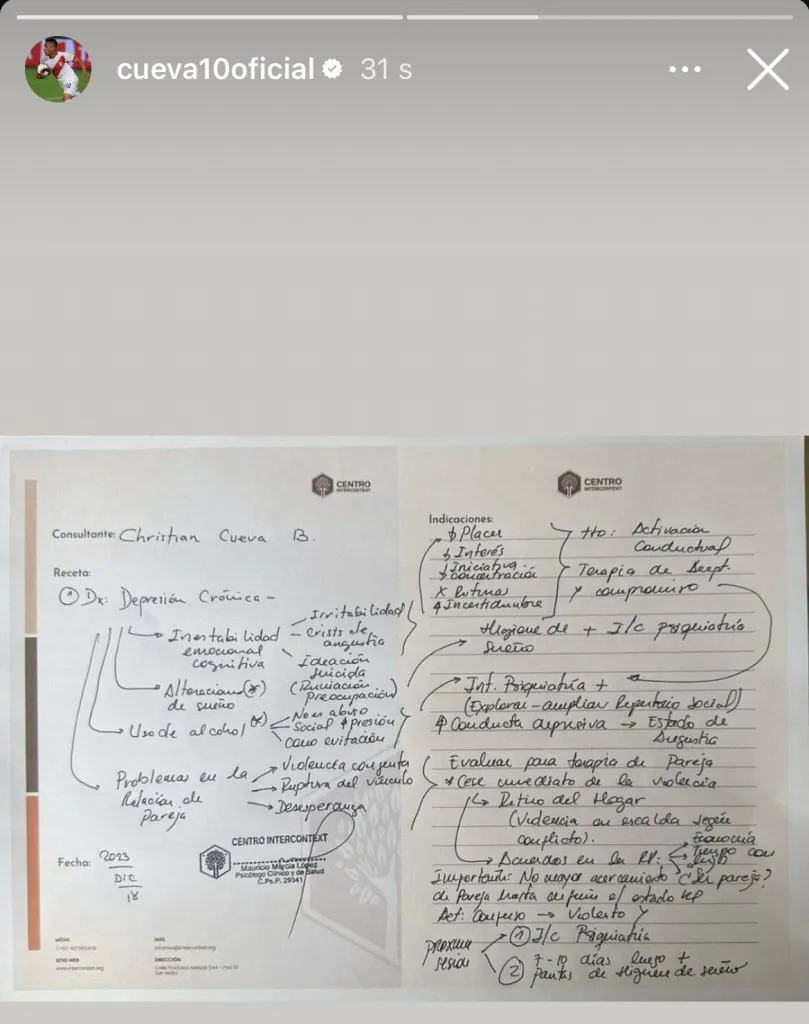 cueva10oficial 31 s
CENTRO
INTERCONTEXT
Consultante: Christian Cueva B.
Receta:
① Dx: Depresión Crónica -
Inestabilidad
emocional
cognitiva
Irritabilidad
Crisis de
angustia
Ideación
suicida
(Rumiación
Preocupación)
Alteracion(*)
de sueño
Uso de alcohol (*)
No es abuso
Social ↑ presión
como evitación
Problemas en la
Relación de
pareja
Violencia conjunta
Ruptura del vínculo
Desesperanza
Fecha: 2023
DIC
18
CENTRO INTERCONTEXT
Mauricio Murcia López
Psicólogo Clínico y de Salud
C.Ps.P. 29341
MÓVIL
MAIL
SITIO WEB
www.intercontext.org
DIRECCIÓN
CENTRO
INTERCONTEXT
Indicaciones:
↓ Placer
↓ Interés
↓ Iniciativa
↓ concentración
X Rutinas
↑ Incertidumbre
tto: Activación
Conductual
Terapia de Acept.
y compromiso
Higiene de + I/c psiquiatría
sueño
Int. Psiquiatría +
(Explorar-ampliar Repertorio Social)
↑ Conducta depresiva → Estado de
Angustia
Evaluar para terapia de Pareja
* Cese inmediato de la violencia
Retiro del Hogar
(Violencia en escalda según
conflicto).
Acuerdos en la RP:
Economía
Tiempo con
¿Ser pareja?
Importante: No mayor acercamiento
de Pareja hasta el estado
Act: → Violento y
próxima
sesión
① I/c Psiquiatría
② 7-10 días luego +
pautas de Higiene de sueño